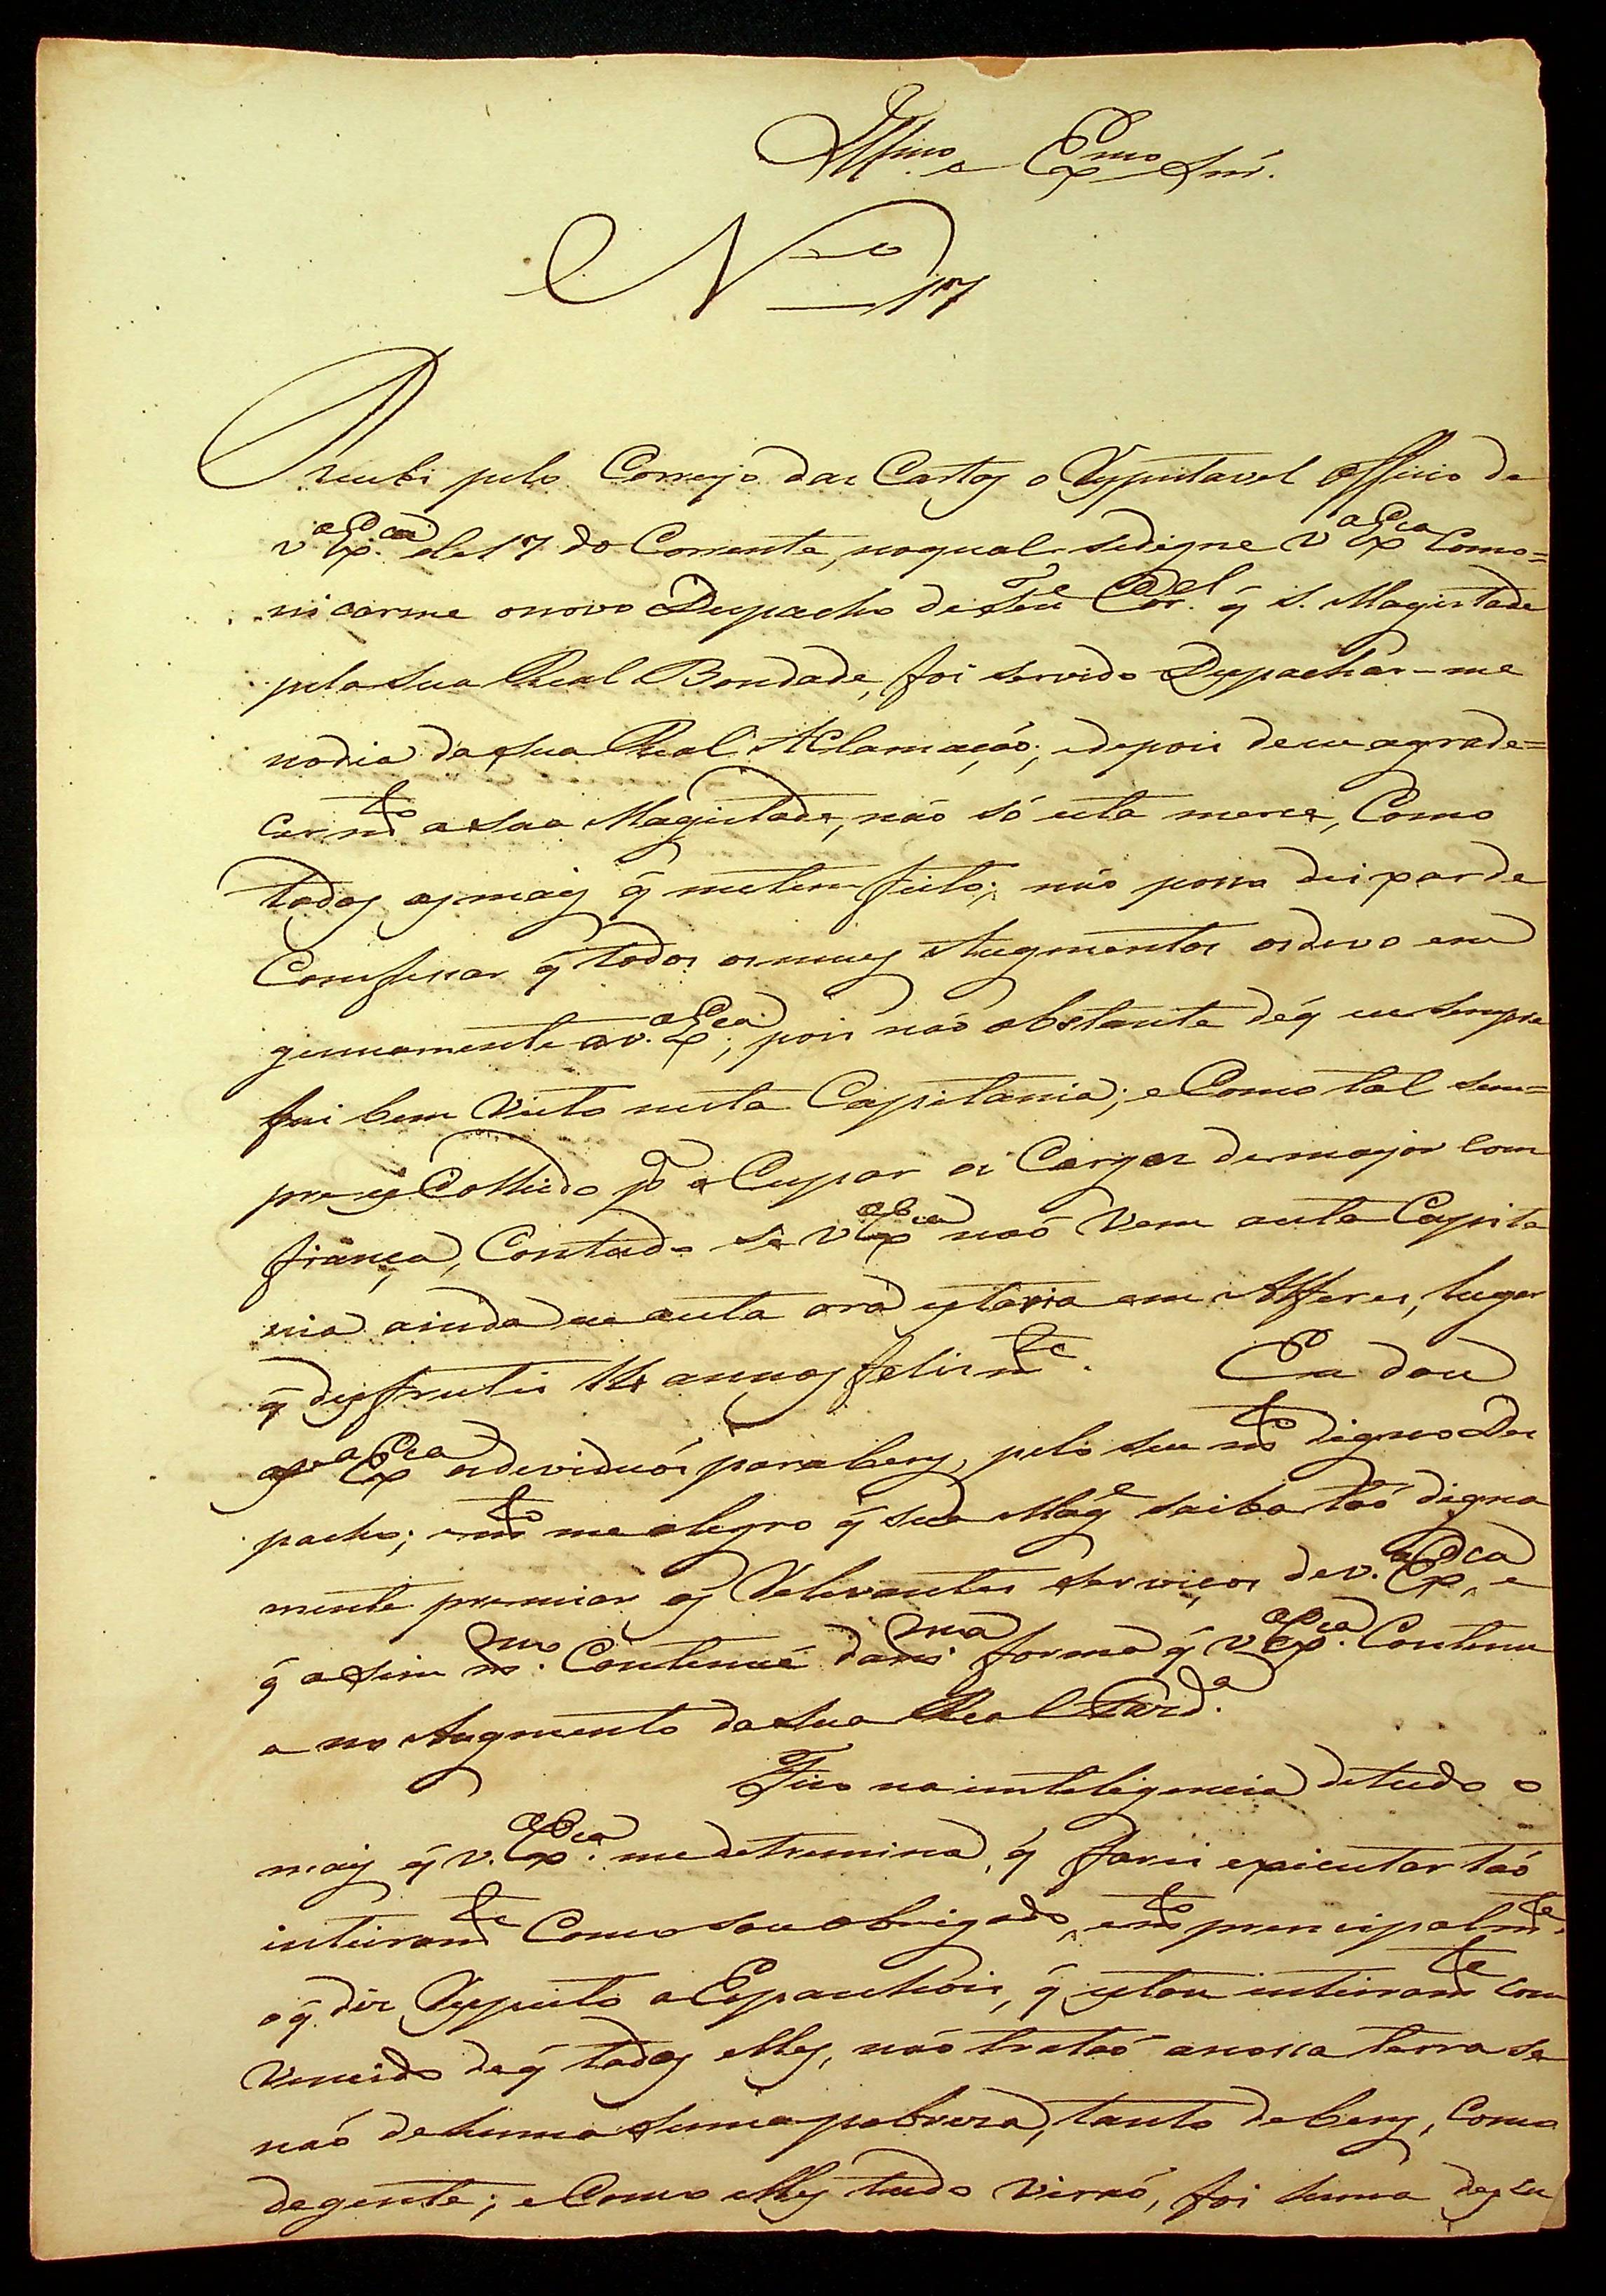 Illmo. e Exmo Snr.
No 17
Recebi pelo Correyo das Cartas o Respeitavel Officio de
va Exca. de 17 do Corrente, noqual sedigne Va Exca Como=
nicarme o novo Despacho de Tene Corel. q̃ S. Magestade
pela sua Real Bondade, foi servido Despachar-me
nodia da sua Real Aclamação; e depois de eu agrade=
cer mto a sua Magestade, não só esta merce, Como
todas as mais q̃ metem feito; não posso deixar de
Comfessar q̃ todos os meus Augmentos os devo em
genuamente a v.a Exca; pois não obstante de q̃ eu sempre
fui bem Visto nesta Capitania; e Como tal sem=
pre escolhido pa o Cupar os Cargos de mayor com
fiança, Contudo se Va Exca não Vem a esta Capita
nia ainda eu a esta ora estaria em Alferes, lugar
q̃ desfrutei 14 annos felismte. Eu dou
a va Exca os devidos parabens, pelo seu mto digno Des
pacho; e mto me alegro q̃ sua Mage saiba tão digna
mente premiar os Relevantes serviços de v.a Exca, e
q̃ a sim mmo. Contenue da mma forma q̃ Va Exca. Contenu
a no Augmento da sua Real Fazda.
Fico na inteligencia de tudo o
mais q̃ v.a Exca. me detremina, q̃ farei exzecutar tão
inteiramte Como sou obrigado, e mto prencipalmte,
o q̃ diz Respeito a Espanhois, q̃ estou inteiramte com
Vencido de q̃ todos elles, não tratão a nossa terra se
não de huma suma pobreza, tanto de bens, Como
de gente; e Como elles tudo Virão, foi huma desen